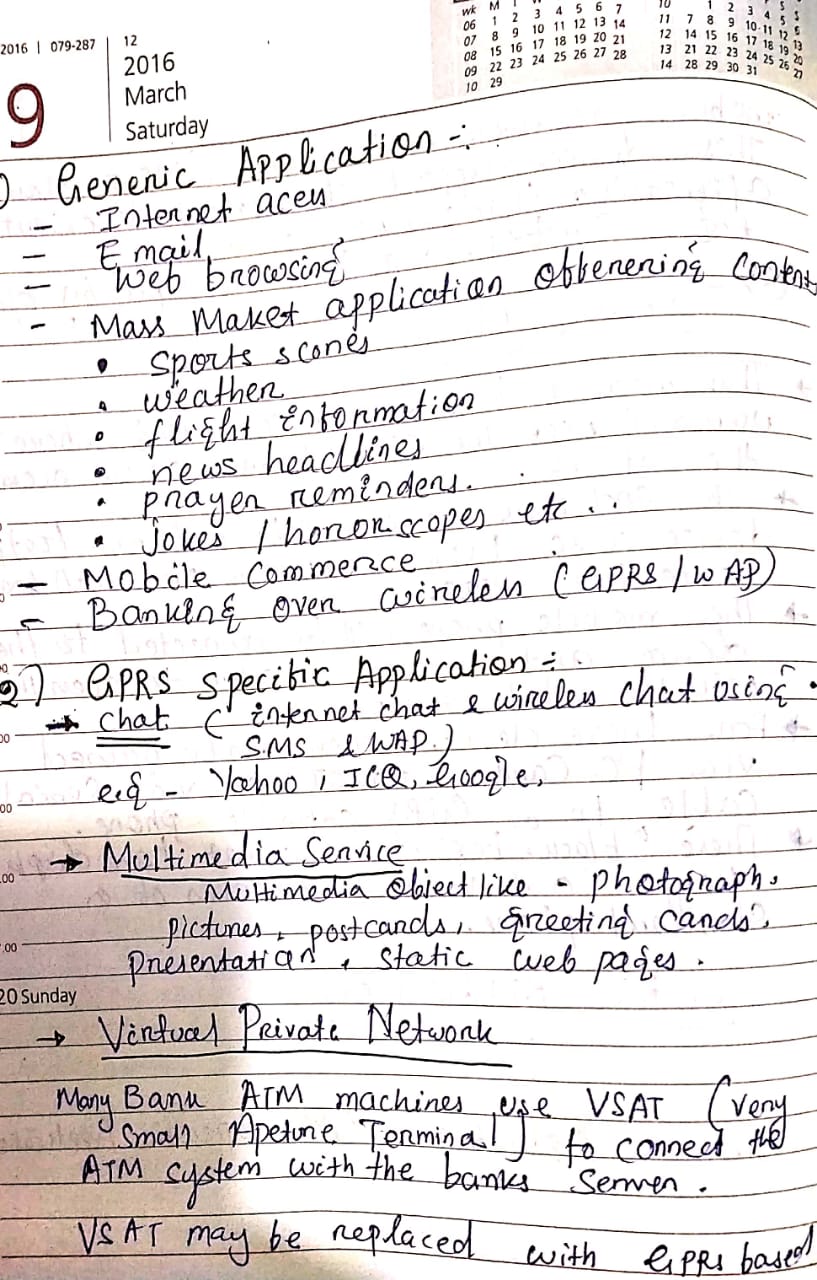 wk M
06 1 2 3 4 5 6 7
07 8 9 10 11 12 13 14
08 15 16 17 18 19 20 21
09 22 23 24 25 26 27 28
10 29
10 1 2 3 4 5 6
11 7 8 9 10 11 12 13
12 14 15 16 17 18 19 20
13 21 22 23 24 25 26 27
14 28 29 30 31
2016 | 079-287
9
12
2016
March
Saturday
) Generic Application -:
- Internet acess
- E mail
- Web browsing
- Mass Maket application offerering Content
• Sports scores
• weather
• flight information
• news headlines
• prayer reminders.
• Jokes / horor scopes etc...
- Mobile Commerce
- Banking over wireless (GPRS / WAP)
2) GPRS specific Application :-
→ Chat ( internet chat & wireless chat using
SMS & WAP.)
e.g - Yahoo, ICQ, Google,
→ Multimedia Service
Multimedia Object like - photograph,
pictures, postcards, greeting cards,
presentation, static web pages.
20 Sunday
→ Virtual Private Network
Many Bank ATM machines use VSAT (very
Small Apeture Terminal) to connect the
ATM system with the banks Server.
VSAT may be replaced with GPRS based